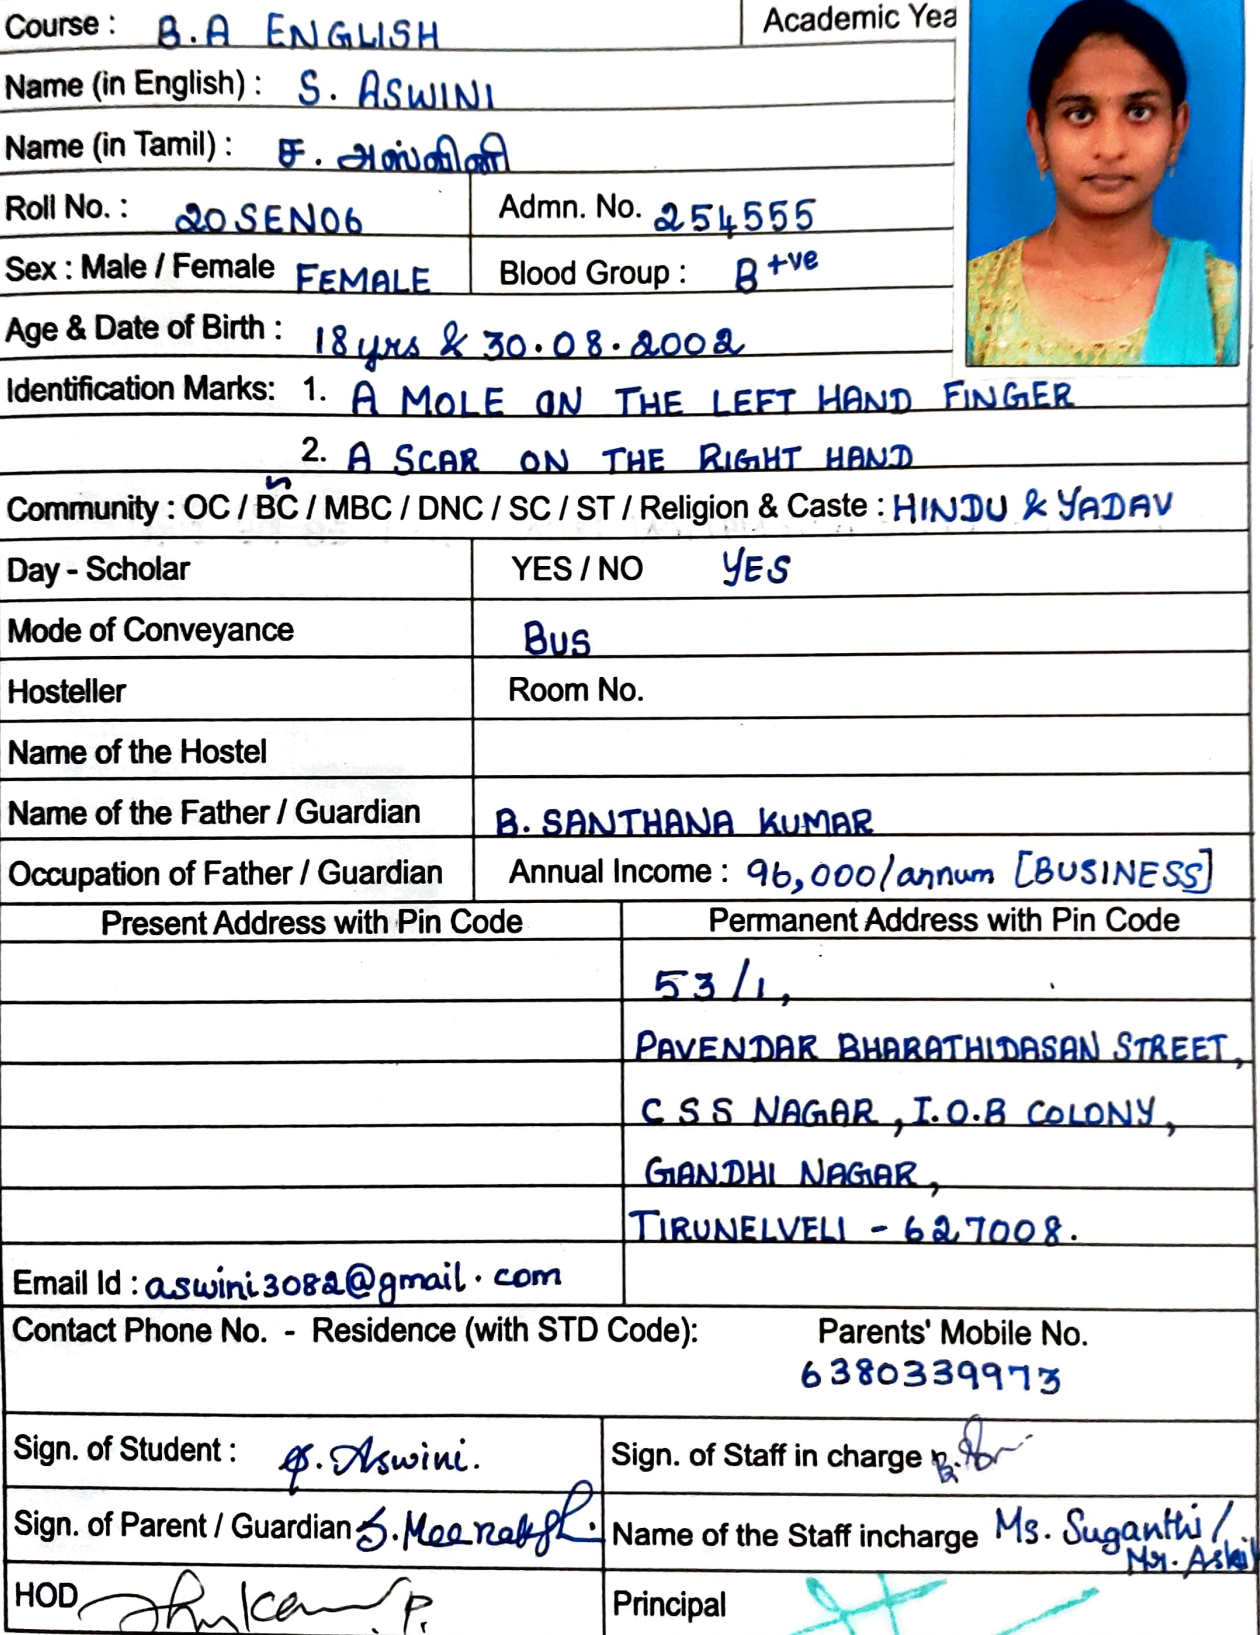 Course : B.A ENGLISH Academic Yea
Name (in English) : S. ASWINI
Name (in Tamil) : ச. அஸ்வினி
Roll No. : 20SEN06 Admn. No. 254555
Sex : Male / Female FEMALE Blood Group : B +ve
Age & Date of Birth : 18 yrs & 30.08.2002
Identification Marks: 1. A MOLE ON THE LEFT HAND FINGER
2. A SCAR ON THE RIGHT HAND
Community : OC / BC / MBC / DNC / SC / ST / Religion & Caste : HINDU & YADAV
Day - Scholar YES / NO YES
Mode of Conveyance BUS
Hosteller Room No.
Name of the Hostel
Name of the Father / Guardian B. SANTHANA KUMAR
Occupation of Father / Guardian Annual Income : 96,000/annum [BUSINESS]
Present Address with Pin Code Permanent Address with Pin Code
53/1,
PAVENDAR BHARATHIDASAN STREET,
C S S NAGAR, I.O.B COLONY,
GANDHI NAGAR,
TIRUNELVELI - 627008.
Email Id : aswini3082@gmail.com
Contact Phone No. - Residence (with STD Code): Parents' Mobile No.
6380339973
Sign. of Student : S. Aswini. Sign. of Staff in charge
Sign. of Parent / Guardian S. Meenakshi. Name of the Staff incharge Ms. Suganthi /
Mr.
HOD Principal